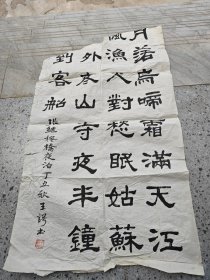 月落烏啼霜滿天江
楓漁火對愁眠姑蘇
外寒山寺夜半鐘
到客船
張繼楓橋夜泊丁丑秋王書